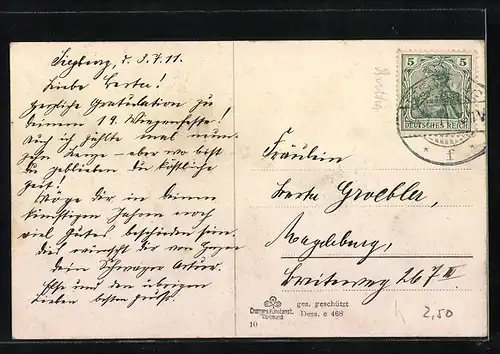 Siegburg, d. 3.4.11.
Liebe Berta!
Herzliche Gratulation zu
deinem 19. Wiegenfeste!
Auch ich zählte mal neun-
zehn Lenze – aber wo bist
du geblieben du köstliche
Zeit!
Möge dir in deinen
künftigen Jahren noch
viel Gutes beschieden sein.
Dies wünscht dir von Herzen
dein Schwager Artur.
Else und den übrigen
Lieben besten Gruß.
5 5
DEUTSCHES REICH
f
Fräulein
Berta Groebla,
Magdeburg,
Breiteweg 267 III
Cramers Kunstanst.
Dortmund
ges. geschützt
Dess. c 468
10
2,50